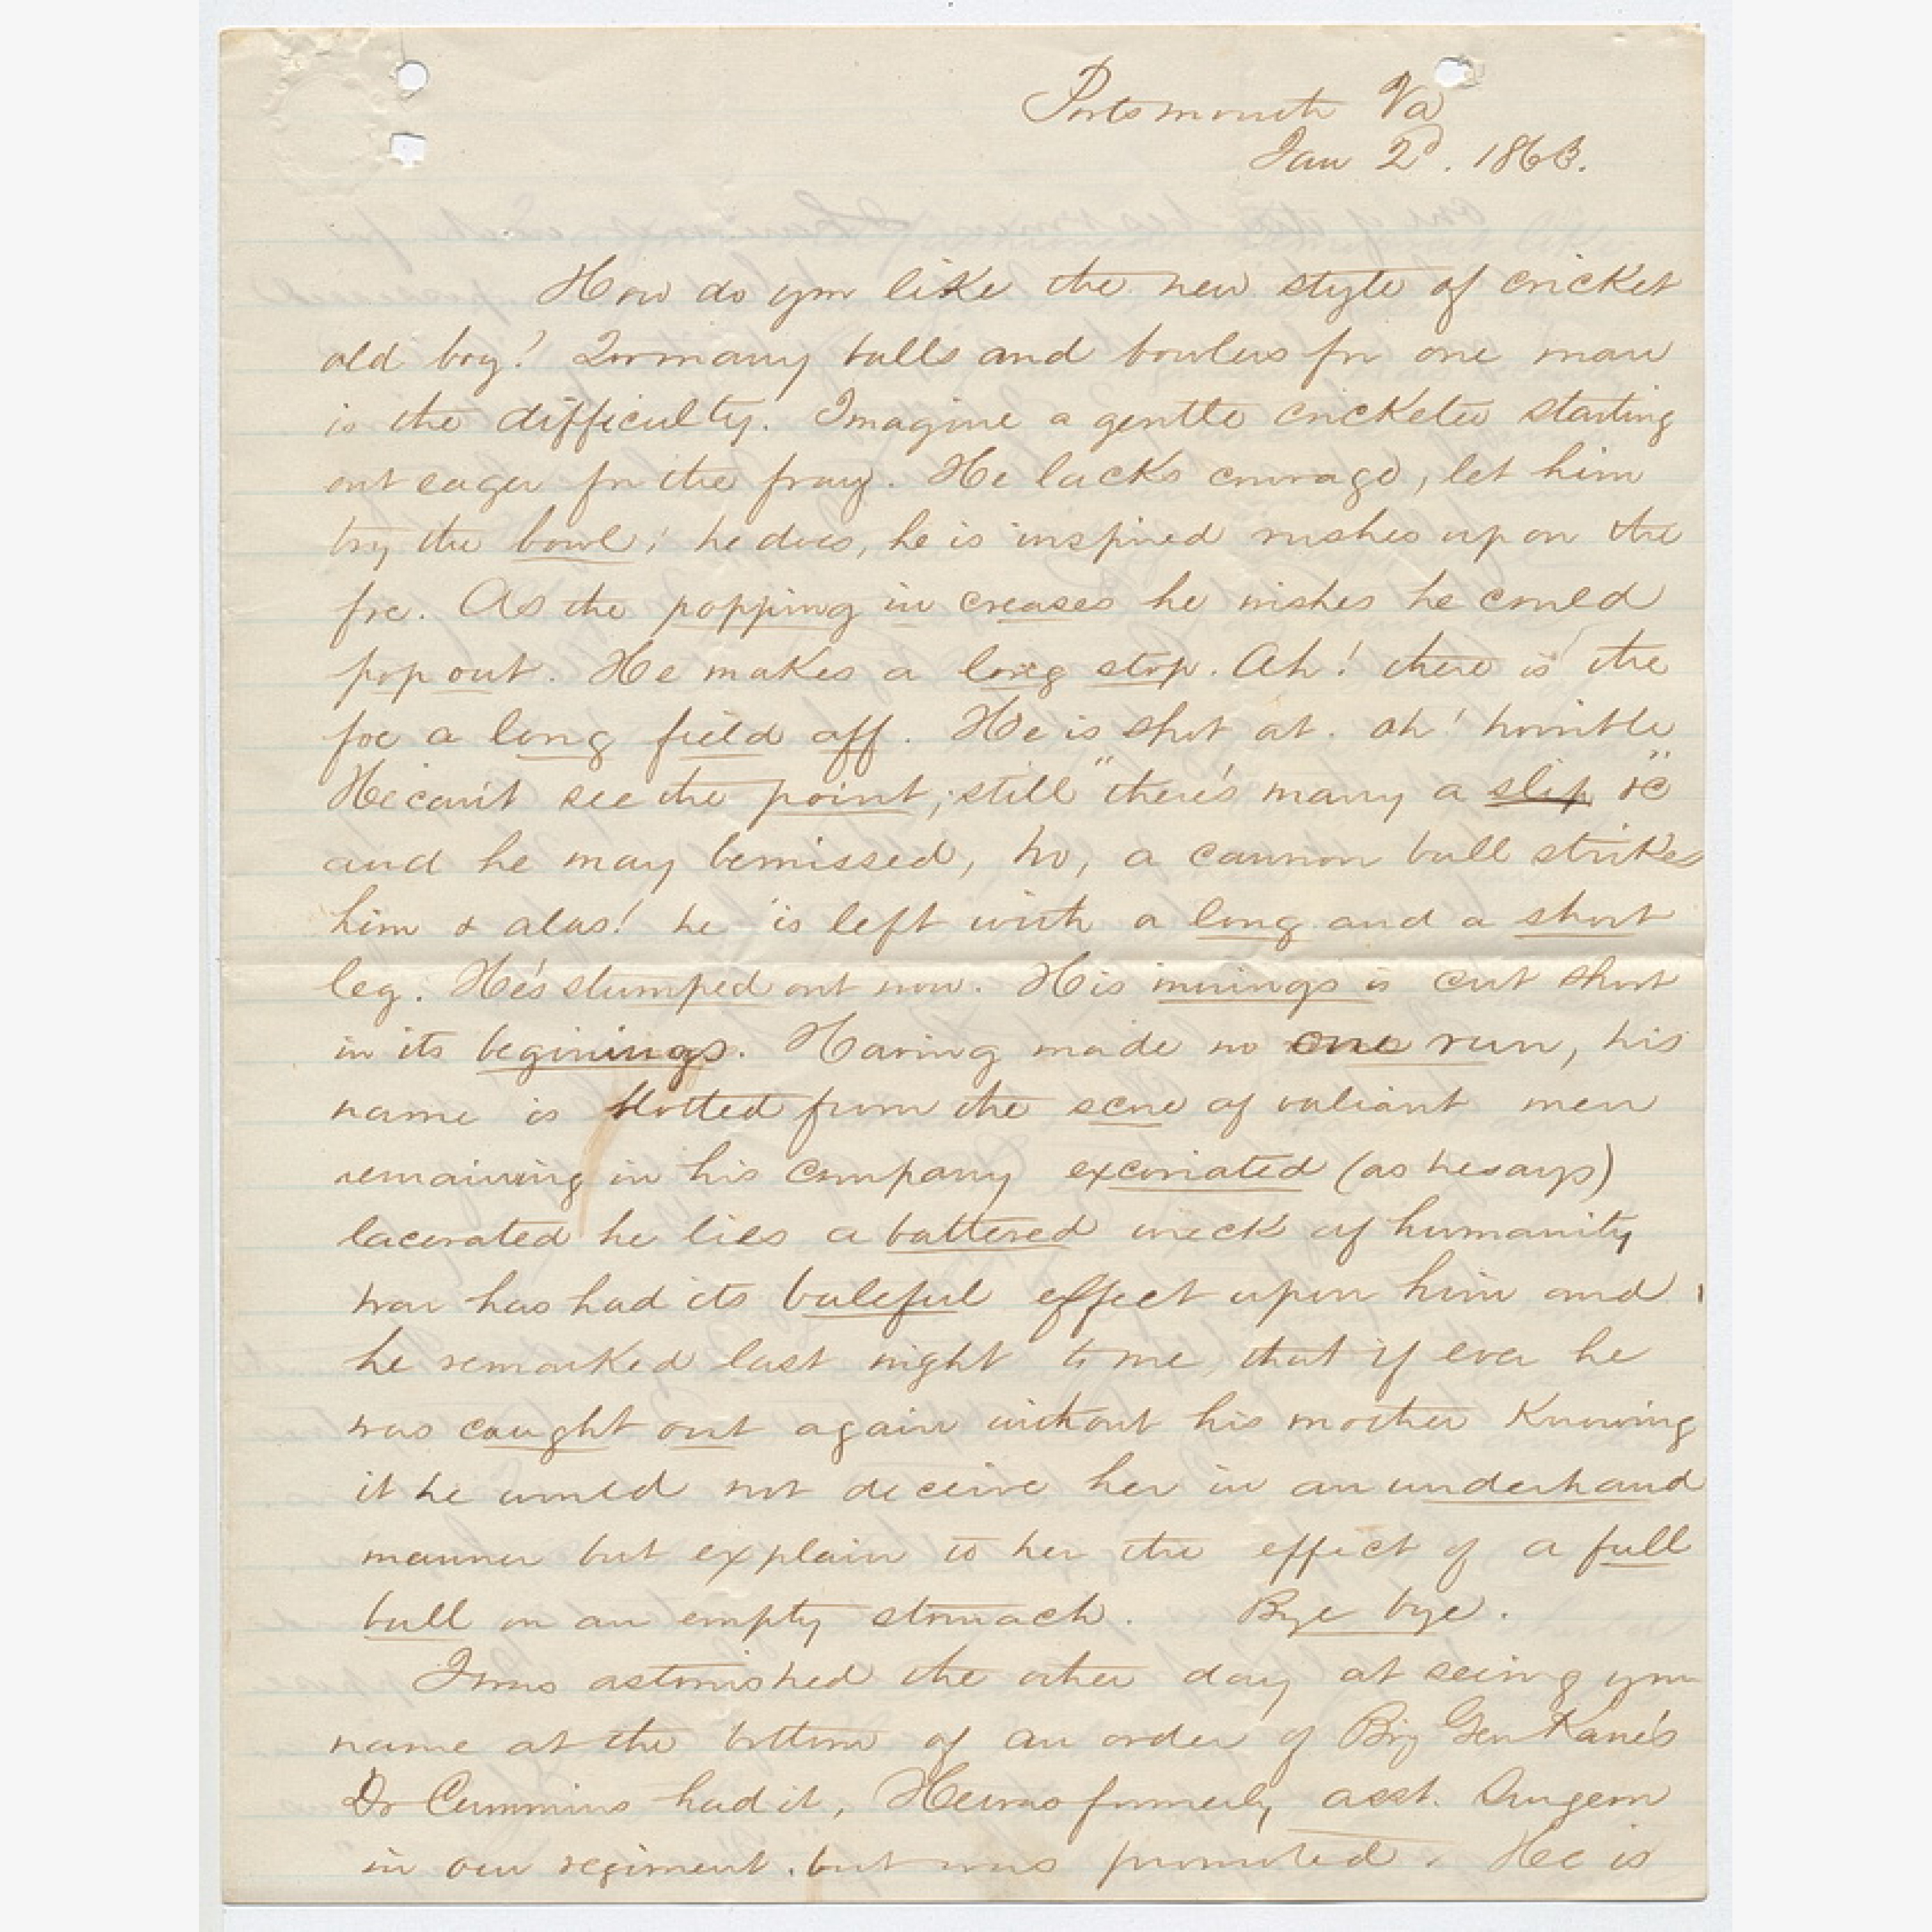 Portsmouth Va
Jan 2d. 1863.
How do you like the new style of cricket
old boy? Too many balls and bowlers for one man
is the difficulty. Imagine a gentle cricketer starting
out eager for the fray. He lacks courage, let him
try the bowl; he does, he is inspired rushes upon the
foe. As the popping in creases he wishes he could
pop out. He makes a long stop. Ah! there is the
foe a long field off. He is shot at. oh! horrible
He can't see the point, still "there's many a slip" &c
and he may be missed, no, a cannon ball strikes
him & alas! he is left with a long and a short
leg. He's stumped out now. His innings is cut short
in its beginings. Having made no one run, his
name is blotted from the score of valiant men
remaining in his company excoriated (as he says)
lacerated he lies a battered wreck of humanity
war has had its baleful effect upon him and
he remarked last night to me, that if ever he
was caught out again without his mother Knowing
it he would not deceive her in an underhand
manner but explain to her the effect of a full
ball on an empty stomach. Bye bye.
I was astonished the other day at seeing your
name at the bottom of an order of Brig Gen Kane's
Dr Cummins had it, He was formerly asst. Surgeon
in our regiment. but was promoted. He is